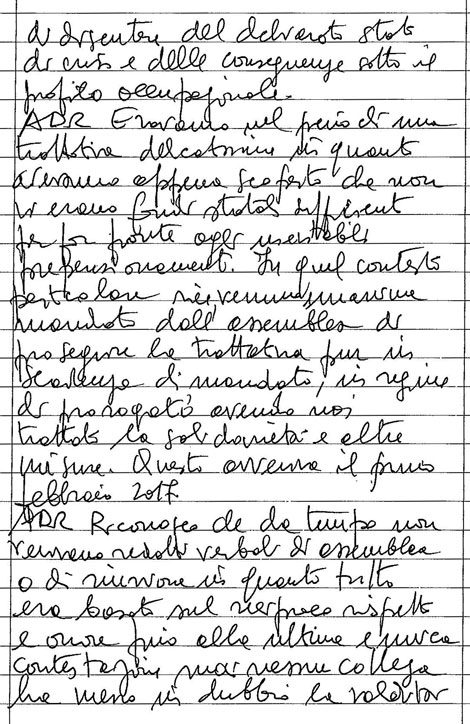 di discutere del dichiarato stato
di crisi e delle conseguenze sotto il
profilo occupazionale.
ADR Eravamo nel pieno di una
trattativa in quanto
avevamo appena scoperto che non
vi erano fondi statali sufficienti
per far fronte agli inevitabili
prepensionamenti. In quel contesto
particolare ricevemmo
mandato dall'assemblea di
proseguire la trattativa pur in
scadenza di mandato, in regime
di prorogatio avendo noi
trattato la solidarietà e altre
misure. Questo avvenne il primo
febbraio 2017
ADR Riconosco che da tempo non
venivano redatti verbali di assemblea
o di riunione in quanto tutto
era basato sul reciproco rispetto
e onore fino alla ultima e unica
contestazione mai nessun collega
ha messo in dubbio la validità